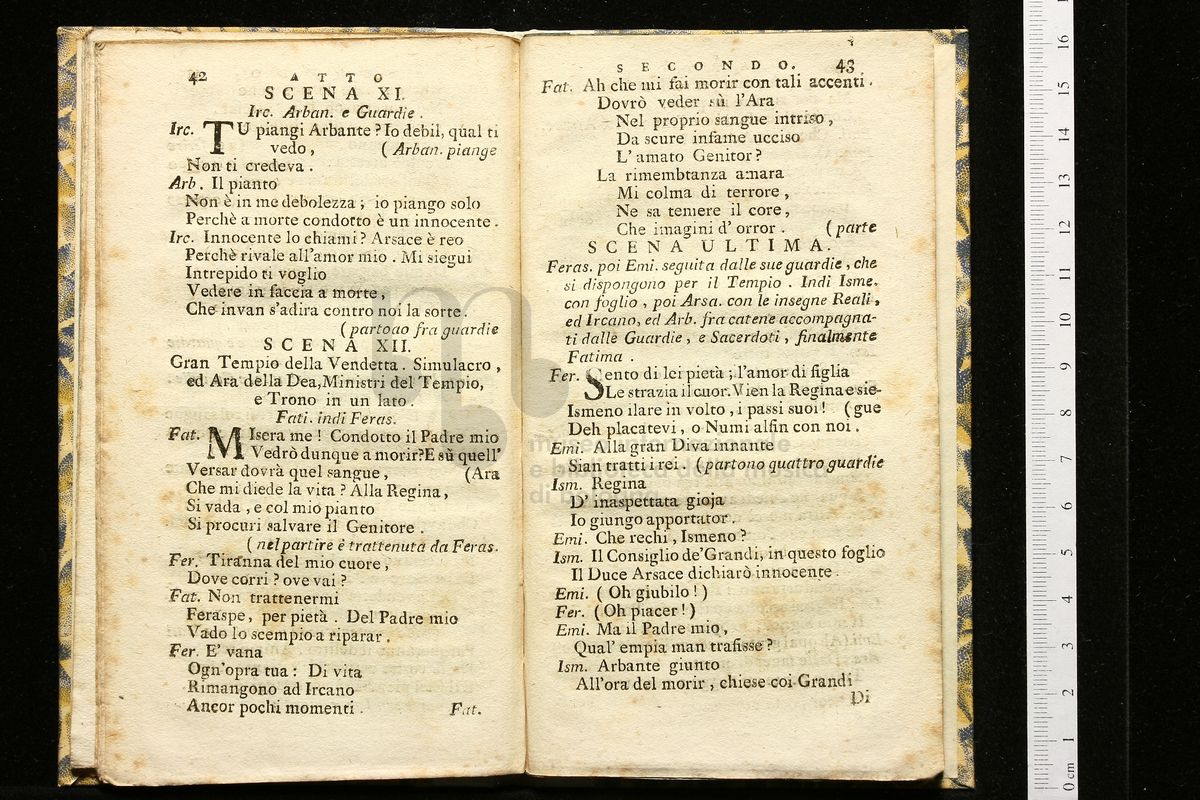 42 ATTO
SCENA XI.
Irc. Arban. e Guardie.
Irc. TU piangi Arbante? Io debil, qual ti
vedo, (Arban. piange
Non ti credeva.
Arb. Il pianto
Non è in me debolezza; io piango solo
Perchè a morte condotto è un innocente.
Irc. Innocente lo chiami? Arsace è reo
Perchè rivale all'amor mio. Mi siegui
Intrepido ti voglio
Vedere in faccia a morte,
Che invan s'adira contro noi la sorte.
(partono fra guardie
SCENA XII.
Gran Tempio della Vendetta. Simulacro,
ed Ara della Dea, Ministri del Tempio,
e Trono in un lato.
Fati. indi Feras.
Fat. MIsera me! Condotto il Padre mio
Vedrò dunque a morir? E sù quell'
Versar dovrà quel sangue, (Ara
Che mi diede la vita? Alla Regina,
Si vada, e col mio pianto
Si procuri salvare il Genitore.
(nel partire è trattenuta da Feras.
Fer. Tiranna del mio cuore,
Dove corri? ove vai?
Fat. Non trattenermi
Feraspe, per pietà. Del Padre mio
Vado lo scempio a riparar.
Fer. E' vana
Ogn'opra tua: Di vita
Rimangono ad Ircano
Ancor pochi momenti. Fat.
SECONDO. 43
Fat. Ah che mi fai morir con tali accenti.
Dovrò veder sù l'Ara
Nel proprio sangue intriso,
Da scure infame ucciso
L'amato Genitor?
La rimembtanza amara
Mi colma di terrore,
Ne sa temere il core,
Che imagini d'orror. (parte
SCENA ULTIMA.
Feras. poi Emi. seguita dalle sue guardie, che
si dispongono per il Tempio. Indi Isme.
con foglio, poi Arsa. con le insegne Reali,
ed Ircano, ed Arb. fra catene accompagna-
ti dalle Guardie, e Sacerdoti, finalmente
Fatima.
Fer. Sento di lei pietà; l'amor di figlia
Le strazia il cuor. Vien la Regina e sie-
Ismeno ilare in volto, i passi suoi! (gue
Deh placatevi, o Numi alfin con noi.
Emi. Alla gran Diva innante
Sian tratti i rei. (partono quattro guardie
Ism. Regina
D'inaspettata gioja
Io giungo apportator.
Emi. Che rechi, Ismeno?
Ism. Il Consiglio de'Grandi, in questo foglio
Il Duce Arsace dichiarò innocente.
Emi. (Oh giubilo!)
Fer. (Oh piacer!)
Emi. Ma il Padre mio,
Qual' empia man trafisse?
Ism. Arbante giunto
All'ora del morir, chiese coi Grandi
Di
0 cm 1 2 3 4 5 6 7 8 9 10 11 12 13 14 15 16